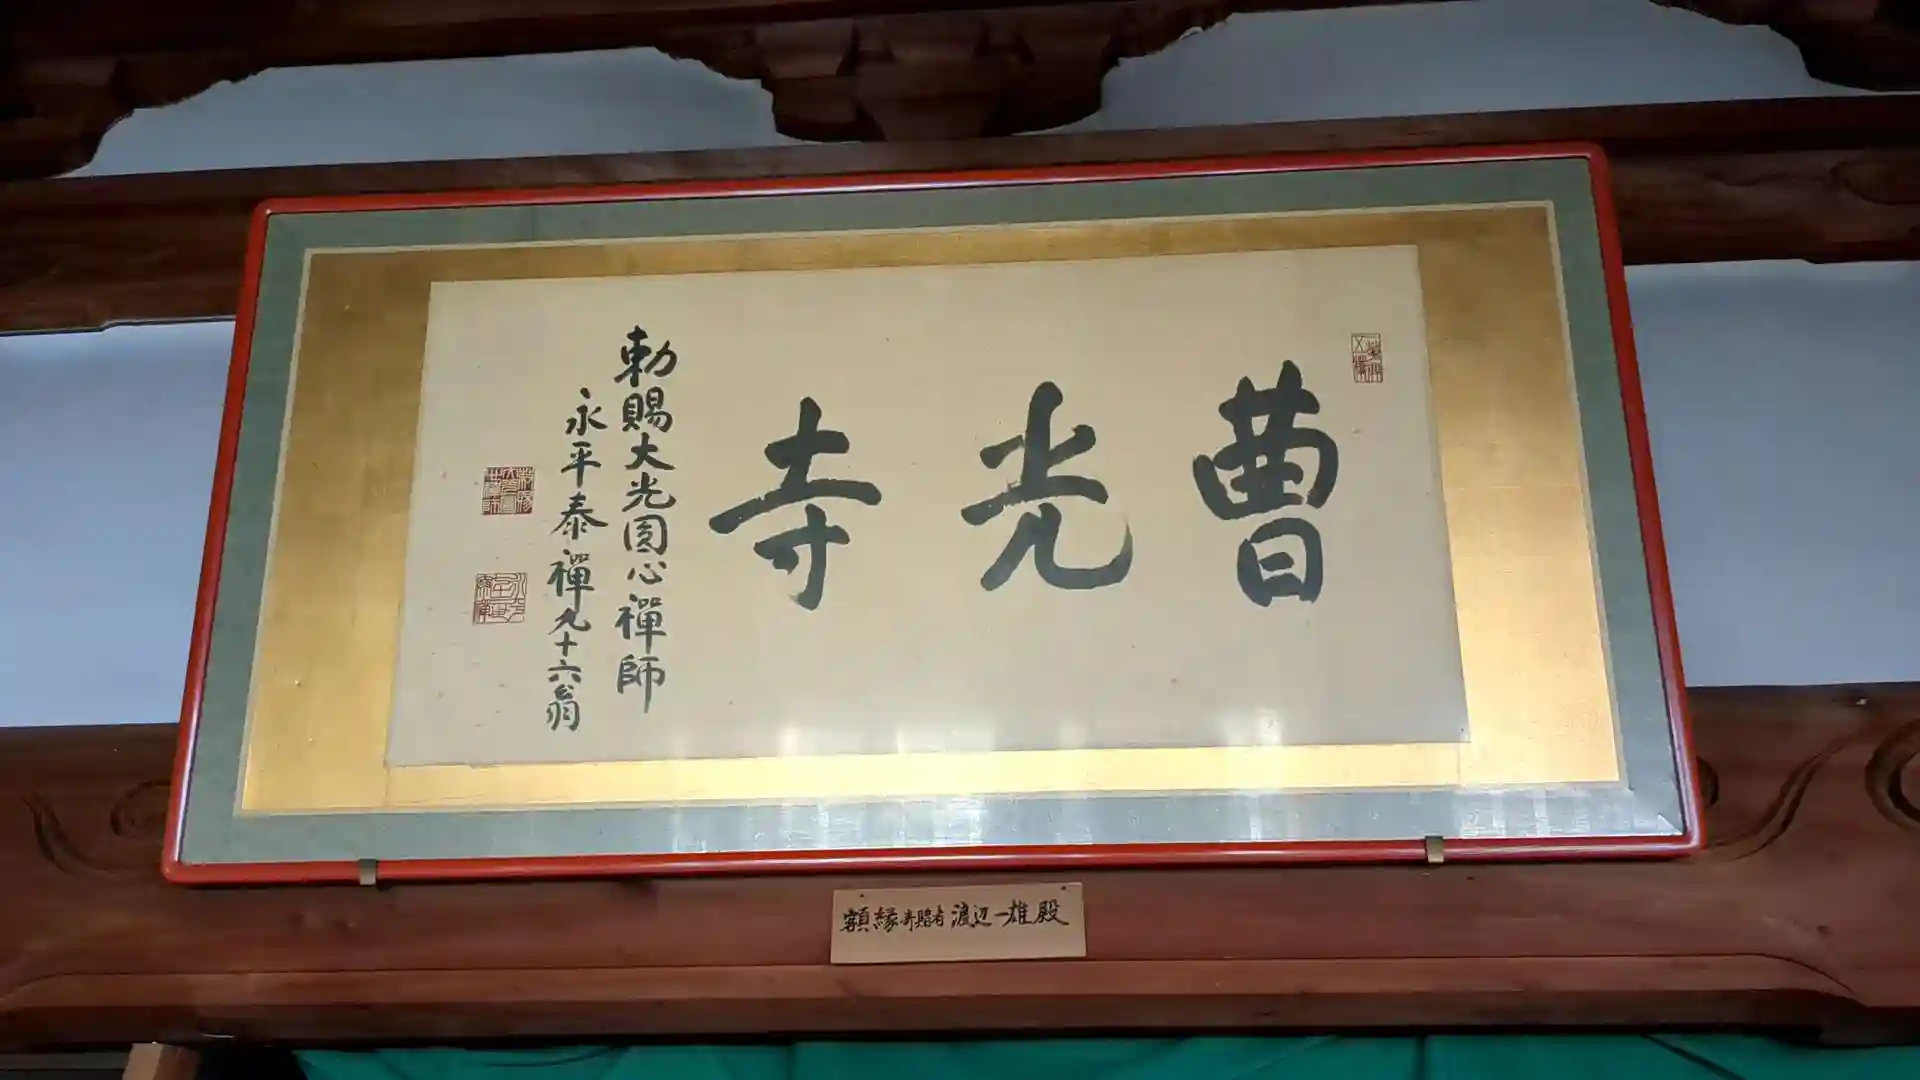 曹光寺
勅賜大光圓心禪師
永平泰禪九十六翁
額縁寄贈者 渡辺一雄殿